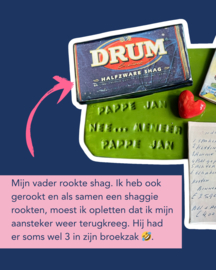 DRUM
HALFZWARE SHAG
PAPPE JAN
NEE... MENEER
PAPPE JAN
Mijn vader rookte shag. Ik heb ook
gerookt en als samen een shaggie
rookten, moest ik opletten dat ik mijn
aansteker weer terugkreeg. Hij had
er soms wel 3 in zijn broekzak 🤣.